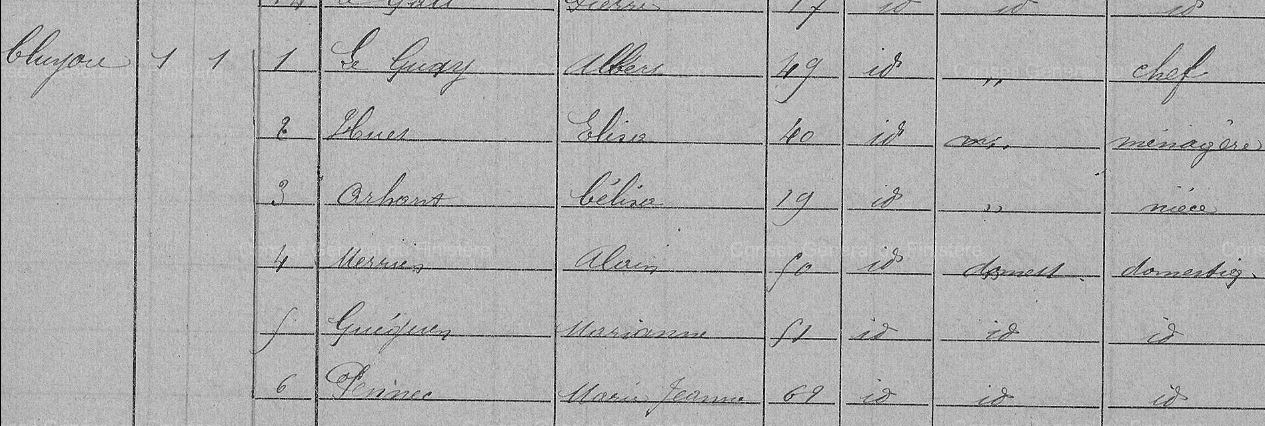 Pierre 17 id id id
Cluyou 1 1 1 Le Guay Albert 49 id " chef
2 Hues Elisa 40 id ménagère
3 Orhant Célina 19 id " nièce
4 Merrien Alain 50 id domest domestiq.
5 Guéguen Marianne 51 id id id
6 Pennec Marie Jeanne 69 id id id
Conseil Général du Finistère Conseil Général du Finistère